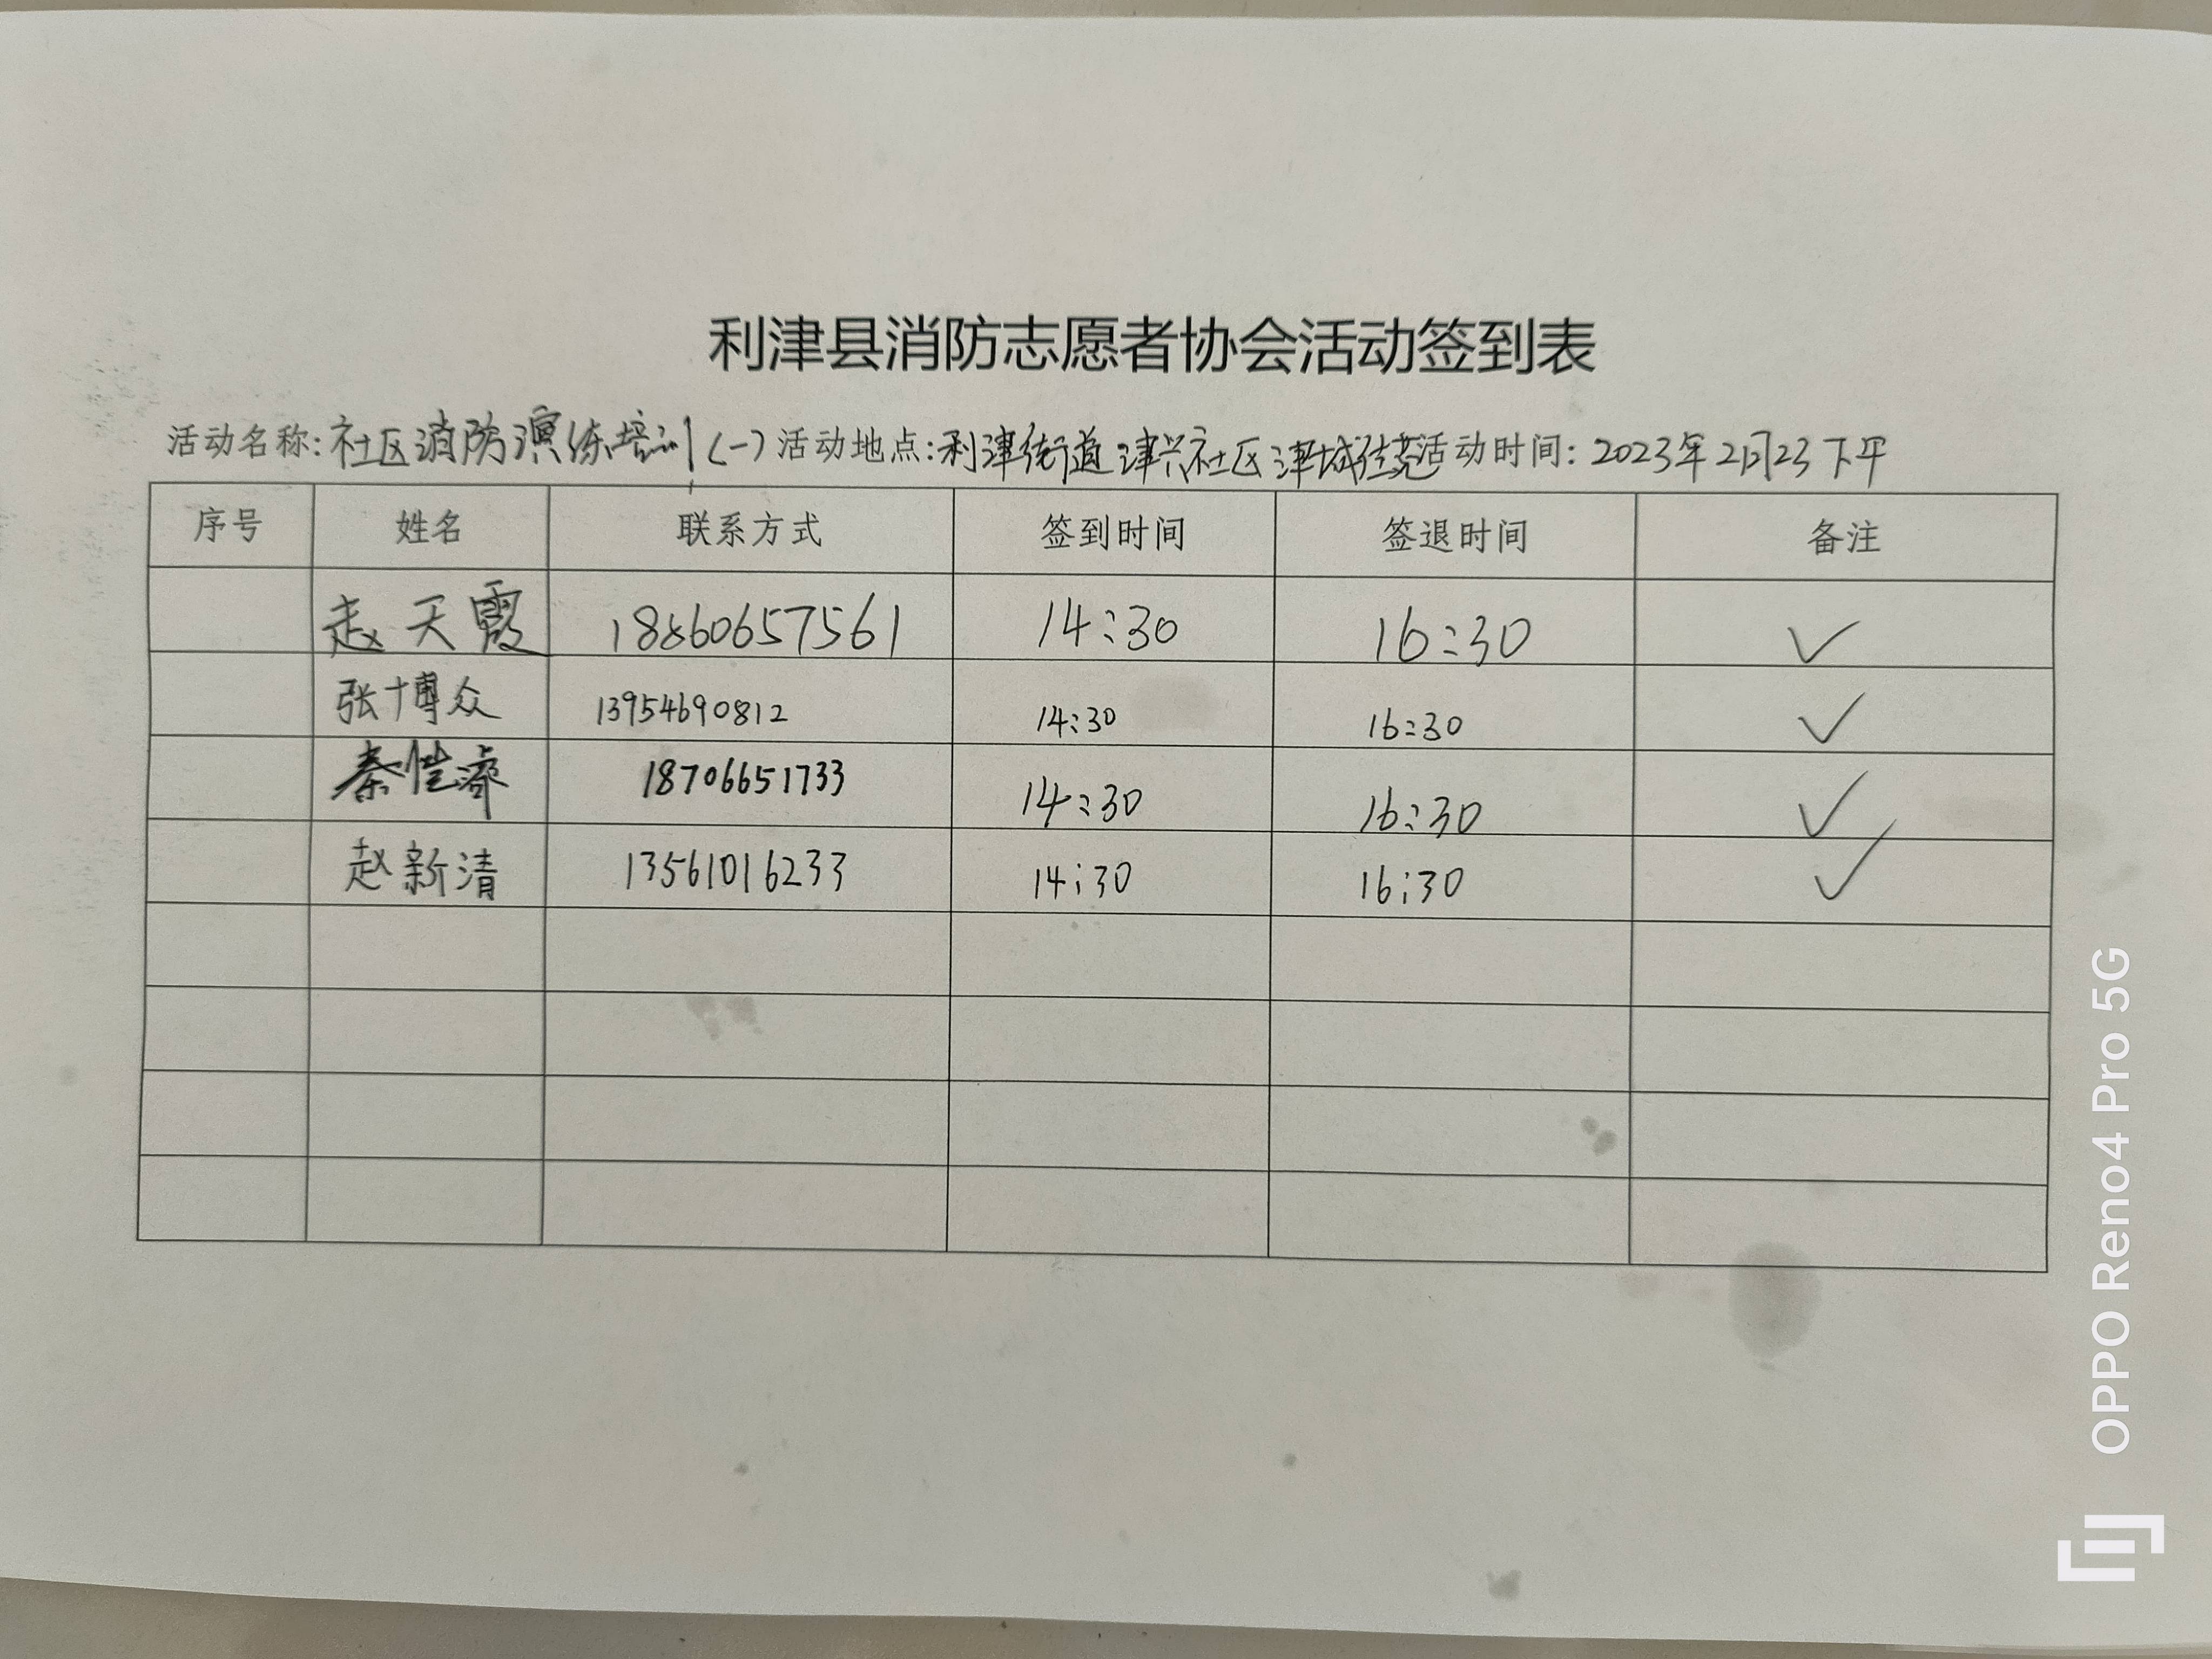 利津县消防志愿者协会活动签到表
活动名称:社区消防演练培训(一) 活动地点:利津街道津兴社区津城 活动时间:2023年2月23下午
序号 姓名 联系方式 签到时间 签退时间 备注
赵天霞 18860657561 14:30 16:30 ✓
张博众 13954690812 14:30 16:30 ✓
秦恺睿 18706651733 14:30 16:30 ✓
赵新清 13561016233 14:30 16:30 ✓
OPPO Reno4 Pro 5G